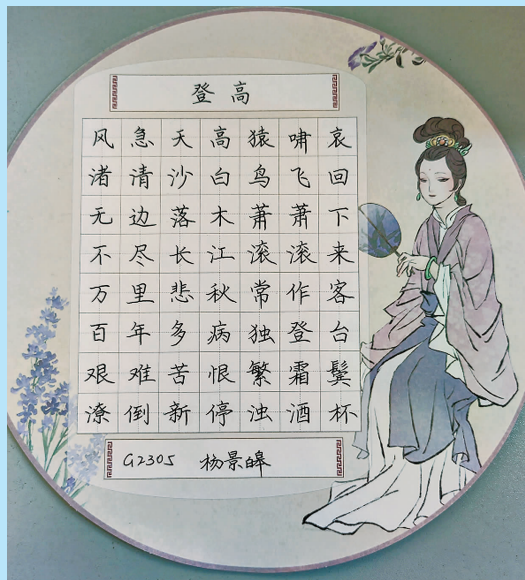 登高
风急天高猿啸哀
渚清沙白鸟飞回
无边落木萧萧下
不尽长江滚滚来
万里悲秋常作客
百年多病独登台
艰难苦恨繁霜鬓
潦倒新停浊酒杯
G2305 杨景皞